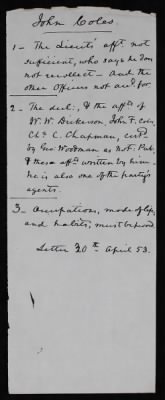 John Coles.
1 - The dicints' afft. not
sufficient, who says he does
not recollect - and the
other Officers not acd. for
2 - The decl:, & the affts. of
W. W. Dickerson, John F. Coles
Chs. C. Chapman, certd.
by Geo. Woodman as not. Pub.
& these affts. written by him.
he is also one of the party's
agents.
3 - Occupations, mode of life,
and habits, must be proved
Letter 20th April 53.